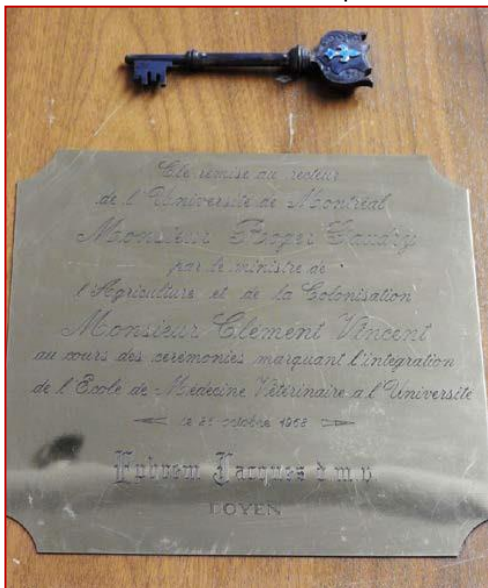 Clé remise au recteur
de l'Université de Montréal
Monsieur Roger Gaudry
par le ministre de
l'Agriculture et de la Colonisation
Monsieur Clément Vincent
au cours des cérémonies marquant l'intégration
de l'École de Médecine Vétérinaire a l'Université
le 31 octobre 1968
Ephrem Jacques d m v
DOYEN